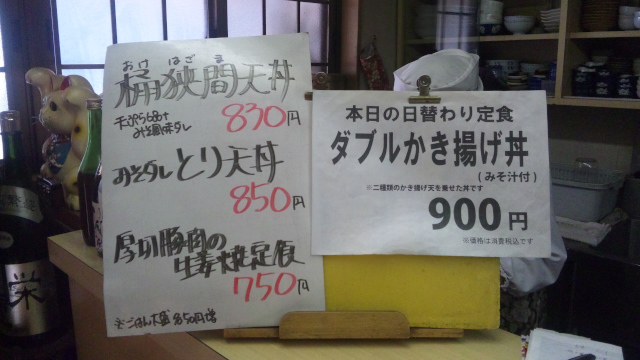 おけ はざま
桶狭間天丼
830円
みそダレとり天丼
850円
厚切豚肉の
生姜焼定食
750円
※ごはん大盛 各50円増
本日の日替わり定食
ダブルかき揚げ丼
(みそ汁付)
※二種類のかき揚げ天を乗せた丼です
900円
※価格は消費税込です
栄